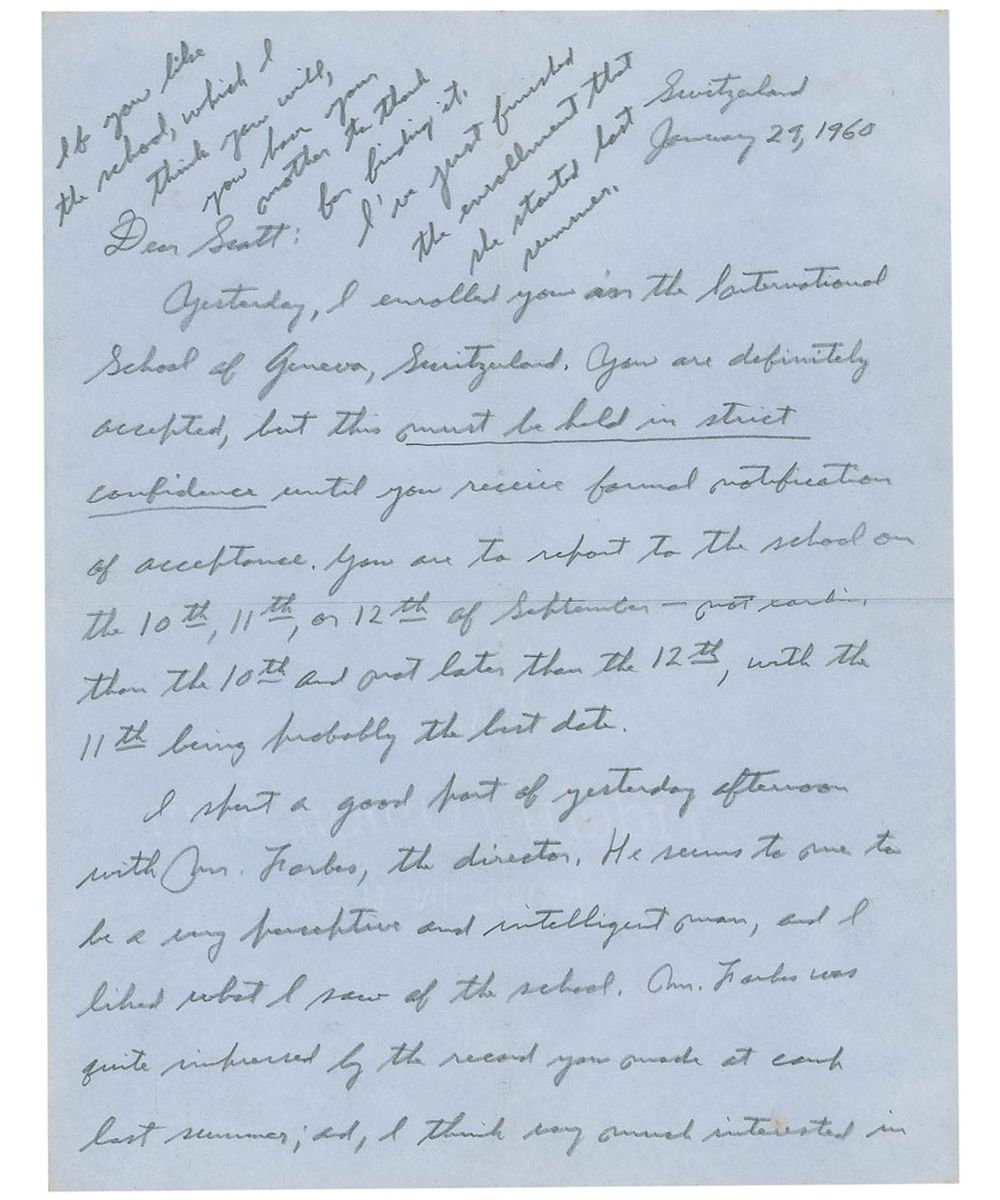 If you like
the school, which I
think you will,
you have your
mother to thank
for finding it.
I've just finished
the enrollment that
she started last
summer.
Switzerland
January 29, 1960
Dear Scott:
Yesterday, I enrolled you in the International
School of Geneva, Switzerland. You are definitely
accepted, but this must be held in strict
confidence until you receive formal notification
of acceptance. You are to report to the school on
the 10th, 11th, or 12th of September — not earlier
than the 10th and not later than the 12th, with the
11th being probably the best date.
I spent a good part of yesterday afternoon
with Mr. Forbes, the director. He seems to me to
be a very perceptive and intelligent man, and I
liked what I saw of the school. Mr. Forbes was
quite impressed by the record you made at camp
last summer; ad, I think very much interested in